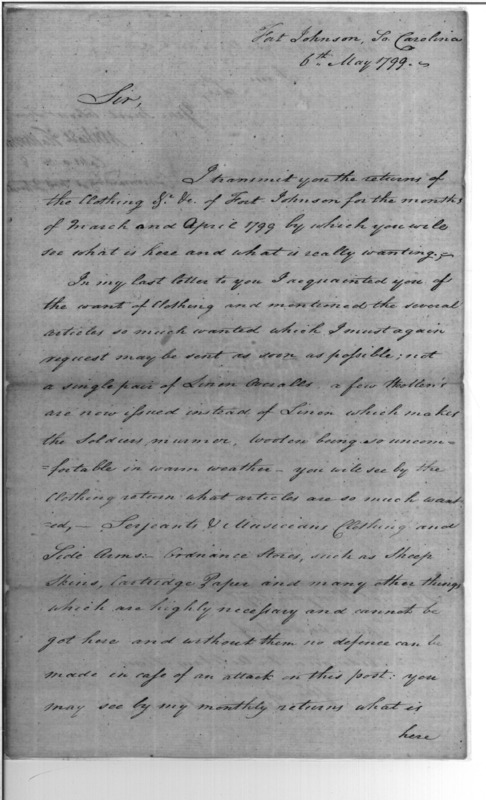 Fort Johnson, So. Carolina
6th. May 1799.
Sir,
I transmit you the returns of
the Clothing &c. &c. of Fort Johnson for the months
of March and April 1799 by which you will
see what is here and what is really wanting.
In my last letter to you I acquainted you of
the want of Clothing and mentioned the several
articles so much wanted which I must again
request may be sent as soon as possible; not
a single pair of Linen Overalls a few Wollen's
are now issued instead of Linen which makes
the Soldiers, murmor, woolen being so uncom=
=fortable in warm weather - you will see by the
Clothing return what articles are so much want
=ed, - Serjeants & Musicians Clothing and
Side Arms:- Ordnance Stores, such as Sheep
Skins, Cartridge Paper and many other things
which are highly necessary and cannot be
got here and without them no defence can be
made in case of an attack on this post: you
may see by my monthly returns what is
here